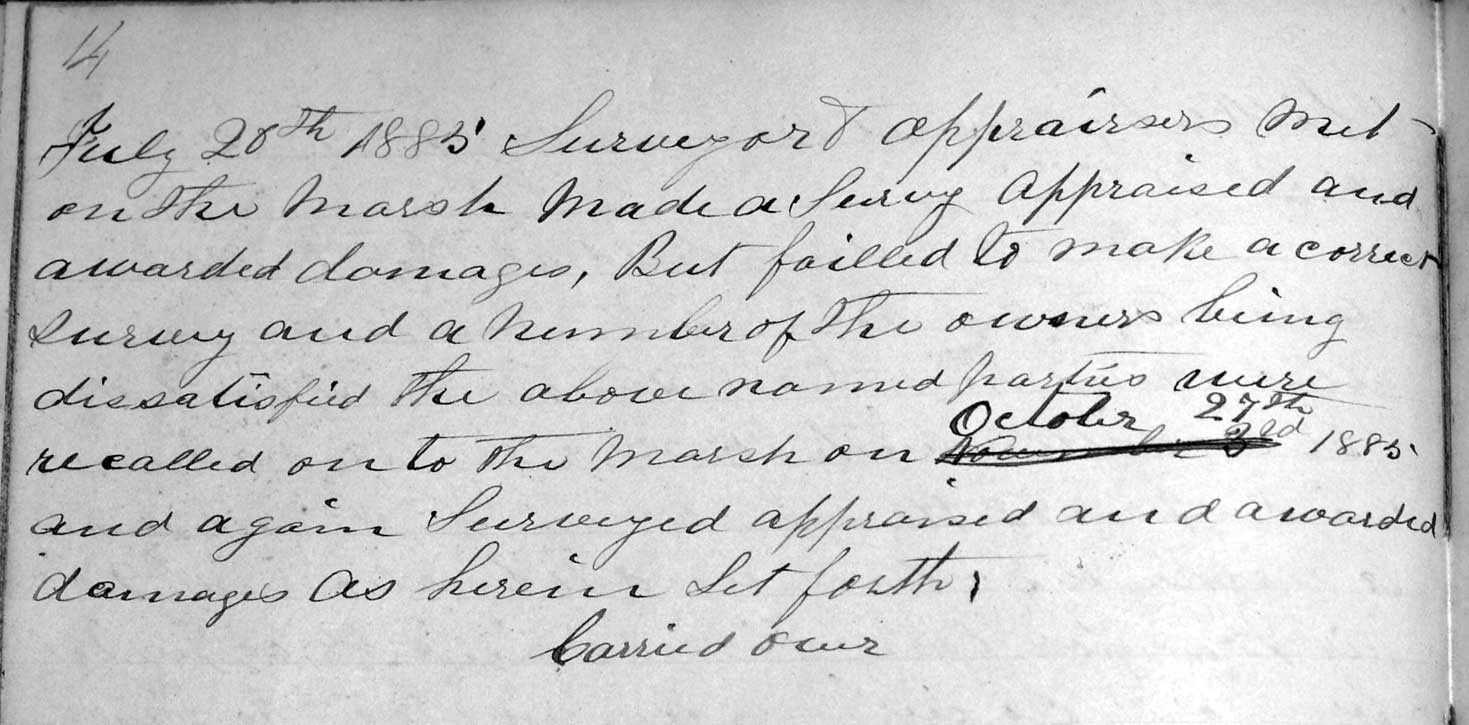 14
July 28th 1885 Surveyor & appraisers Met
on the Marsh Made a Survy Appraised and
awarded damages, But failled to make a correct
survey and a Number of the owners being
dissatisfied the above named parties were
October 27th
recalled on to the Marsh on November 3rd 1885
and again Surveyed appraised and awarded
damages As herein Set forth,
Carried over